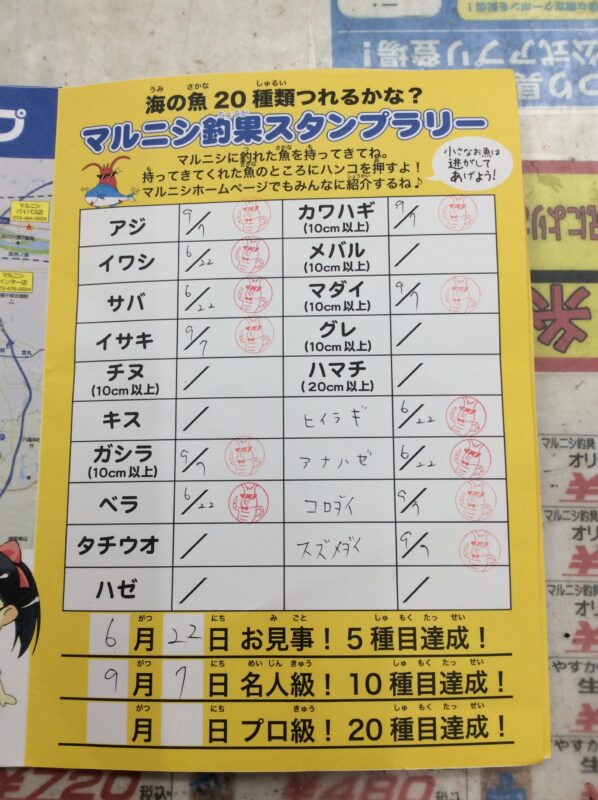 公式アプリ登場!
海の魚20種類つれるかな?
マルニシ釣果スタンプラリー
マルニシに釣れた魚を持ってきてね。
持ってきてくれた魚のところにハンコを押すよ!
マルニシホームページでもみんなに紹介するね♪
小さなお魚は
逃がして
あげよう!
アジ 9/7 カワハギ (10cm以上) 9/7
イワシ 6/22 メバル (10cm以上) /
サバ 6/22 マダイ (10cm以上) 9/7
イサキ 9/7 グレ (10cm以上) /
チヌ (10cm以上) / ハマチ (20cm以上) /
キス / ヒイラギ 6/22
ガシラ (10cm以上) 9/7 アナハゼ 6/22
ベラ 6/22 コロダイ 9/7
タチウオ / スズメダイ 9/7
ハゼ / /
6月22日 お見事!5種目達成!
9月7日 名人級!10種目達成!
月 日 プロ級!20種目達成!
マルニシ
バイパス店
マルニシ
インター店
マルニシ釣具
オリ
マルニシ釣具
オリ
マルニシ釣具
オリ
やすか
¥720 税込
¥480 税込